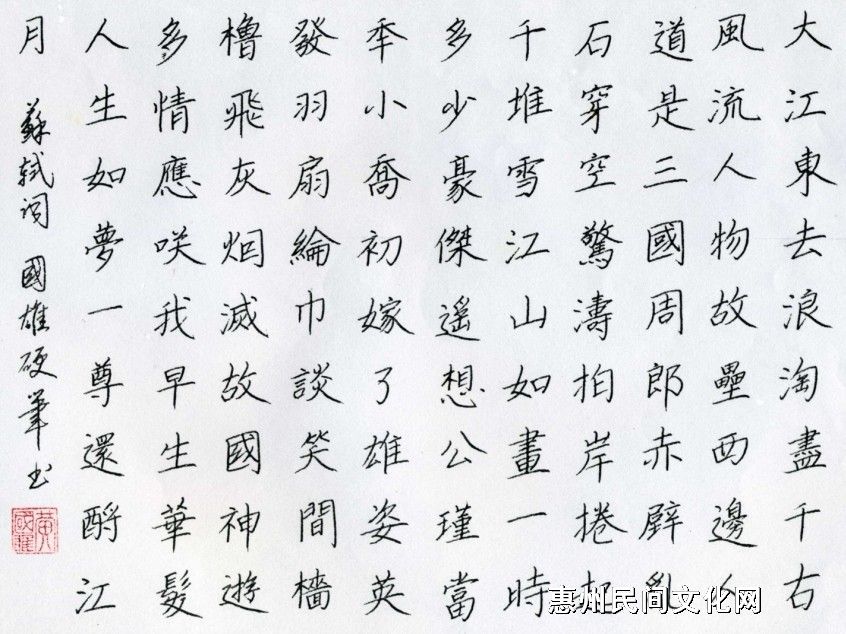 大江東去浪淘盡千古
風流人物故壘西邊人
道是三國周郎赤壁亂
石穿空驚濤拍岸捲起
千堆雪江山如畫一時
多少豪傑遥想公瑾當
秊小喬初嫁了雄姿英
發羽扇綸巾談笑間檣
櫓飛灰烟滅故國神遊
多情應咲我早生華髮
人生如夢一尊還酹江
月 蘇軾詞 國雄硬筆书
黃國雄
惠州民间文化网